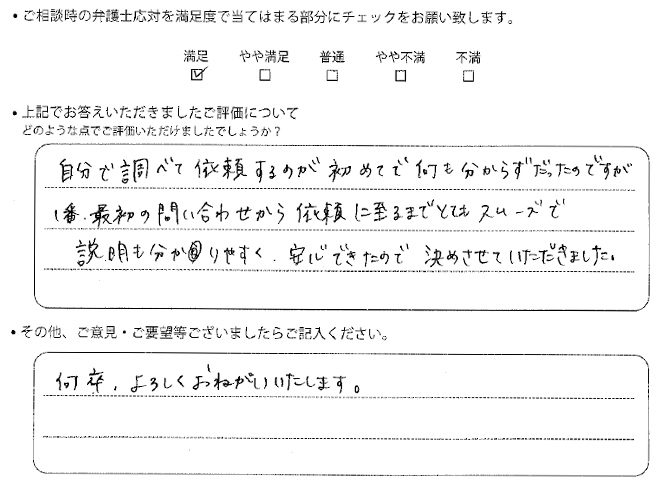 • ご相談時の弁護士応対を満足度で当てはまる部分にチェックをお願い致します。
満足 やや満足 普通 やや不満 不満
☑ ☐ ☐ ☐ ☐
• 上記でお答えいただきましたご評価について
どのような点でご評価いただけましたでしょうか？
自分で調べて依頼するのが初めてで何も分からずだったのですが
1番最初の問い合わせから依頼に至るまでとてもスムーズで
説明も分かりやすく、安心できたので決めさせていただきました。
• その他、ご意見・ご要望等ございましたらご記入ください。
何卒、よろしくおねがいいたします。